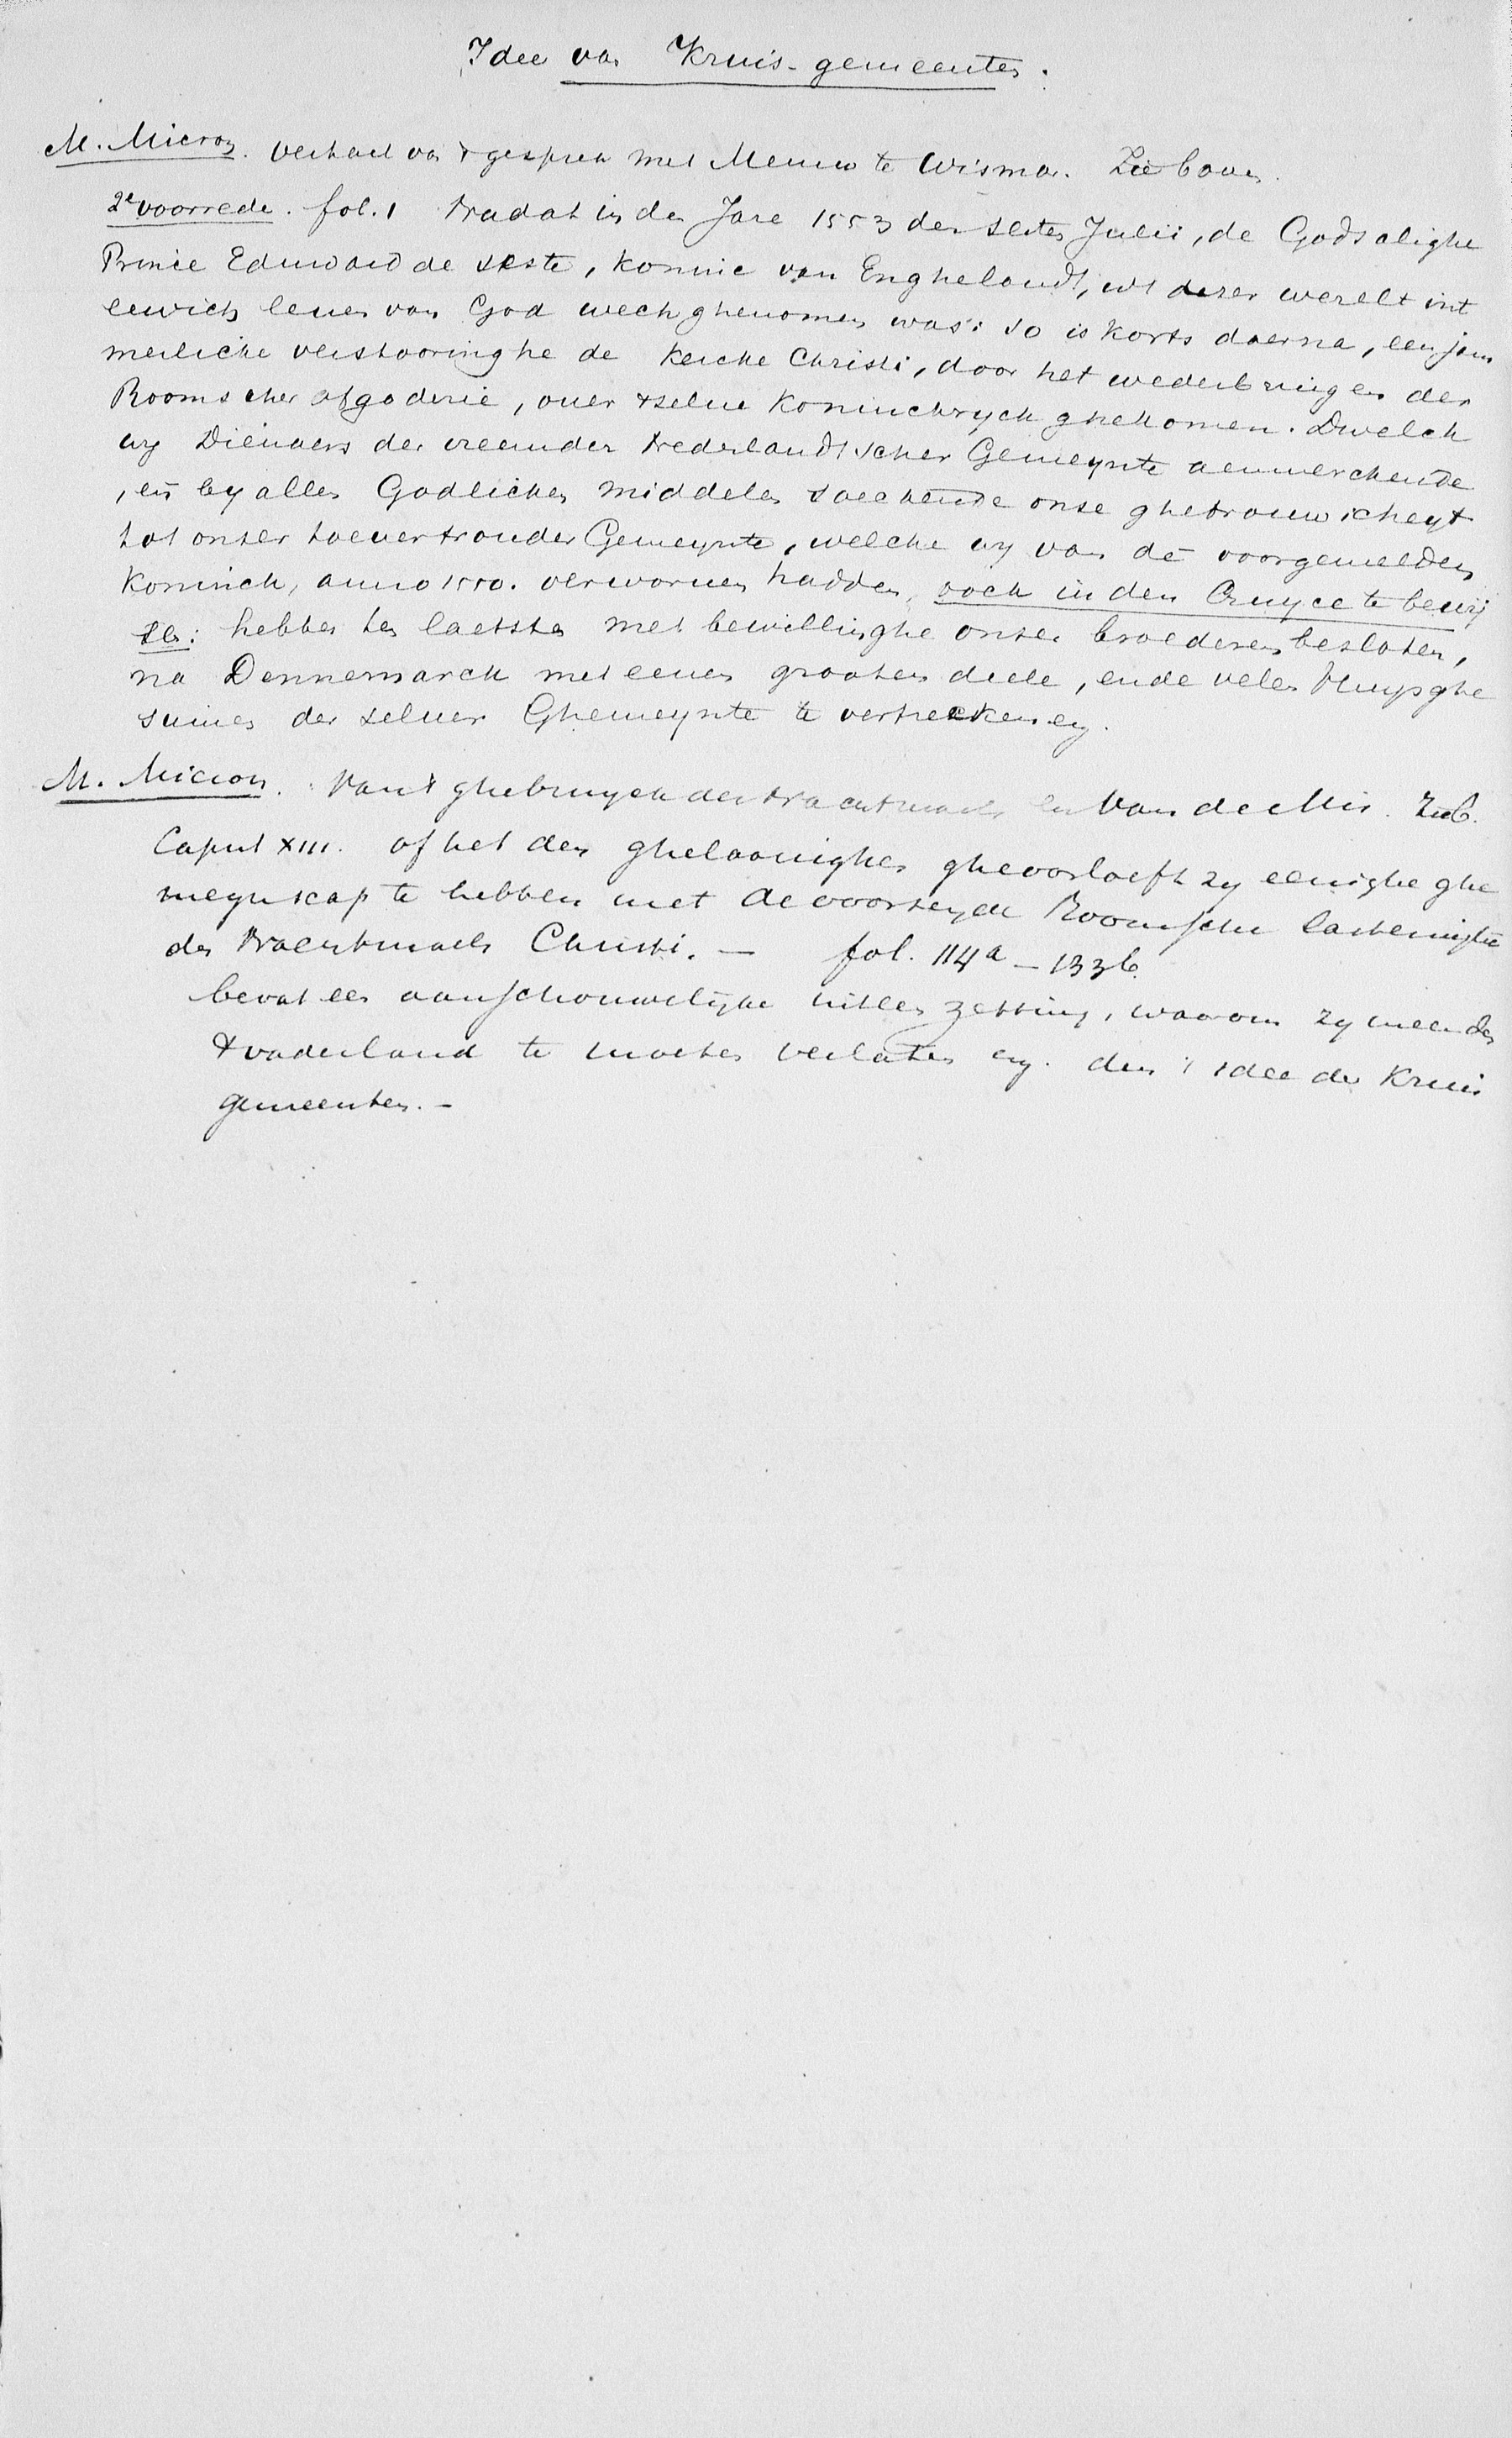 Idee van Kruis-gemeenten.
M. Micron. Verhael van 't gesprek met Menno te Wismar. Zie boven.
2e voorrede. fol. 1 Nadat in den Jare 1553 den sesten Julii, de Godsalighe
Prince Eduward de seste, koninc van Enghelandt, wt deser werelt int
eewich leven van God wech ghenomen was: so is korts daerna, een jam
merlicke verstooringhe de kercke Christi, door het wederbringen der
Roomscher afgoderie, over tselve koninckrych ghekomen. Dwelck
wy Dienaers der vreemder Nederlandtscher Gemeynte aenmerckende
, en by allen Godlicken middelen soeckende onse ghetrouwicheyt
tot onser toevertrouder Gemeynte, welche wy van de voorgemelden
Koninck, anno 1550. verworven hadden, oock in den Cruyce te bewij
sen: hebben ten laetsten met bewillinghe onser broederen besloten,
na Dennemarck met eenen grooten deele, ende velen Huysghe
sinnen der selver Ghemeynte te vertrecken enz.
M. Micron. Van 't ghebruyck des Nachtmaels en Van de Mis. Zie b.
Caput XIII. of het den gheloovighen gheoorloeft zy eenighe ghe
meynscap te hebben met de voorseyde Roomsche
des Nachtmaels Christi. — fol. 114a – 133b.
bevat een aanschouwelijke uiteenzetting, waarom zy meenden
't vaderland te moeten verlaten enz. dus 't idee der Kruis
gemeenten. –